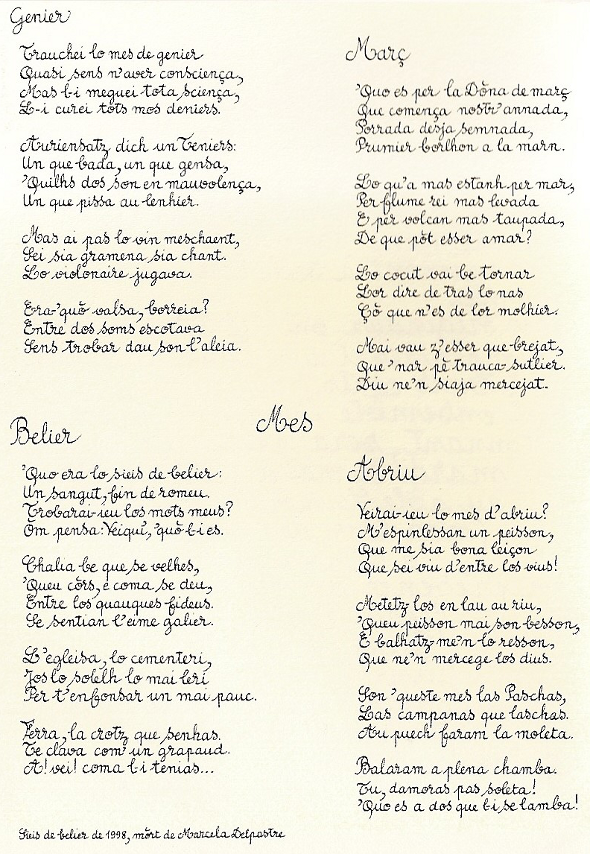 Genier
Trauchei lo mes de genier
Quasi sens n'aver consciença,
Mas b-i meguei tota sciença,
L-i curei tots mos deniers.
Auriensatz dich un Teniers:
Un que bada, un que gensa,
'Quilhs dos son en mauvolença,
Un que pissa au lenhier.
Mas ai pas lo vin meschaent,
Sei sia gramena sia chant.
Lo violonaire jugava.
Era-'quò valsa, borreia?
Entre dos soms escotava
Sens trobar dau son l'aleia.
Març
'Quo es per la Dòna de març
Que comença nostr'annada,
Porrada desja semnada,
Prumier borlhon a la marn.
Lo qu'a mas estanh per mar,
Per flume rei mas levada
E per volcan mas taupada,
De que pòt esser amar?
Lo cocut vai be tornar
Lor dire de tras lo nas
Çò que n'es de lor molhier.
Mai vau z'esser que brejat,
Que 'nar pè trauca-sutlier.
Diu ne'n siaja mercejat.
Mes
Belier
'Quo era lo sieis de belier:
Un sangut, fin de romeu.
Trobarai-ieu los mots meus?
Òm pensa: Veiquí, 'quò b-i es.
Chalia be que se velhes,
'Queu còrs, e coma se deu,
Entre los quauques fideus.
Se sentian l'eime galier.
L'egleisa, lo cementeri,
Jos lo solelh lo mai leri
Per t'enfonsar un mai pauc.
Ferra, la crotz que senhas.
Te clava com' un grapaud.
A! vei! coma b-i tenias...
Abriu
Veirai-ieu lo mes d'abriu?
M'espinlessan un peisson,
Que me sia bona leiçon
Que sei viu d'entre los vius!
Metetz los en lau au riu,
'Queu peisson mai son besson,
E balhatz-me'n lo resson,
Que ne'n mercege los dius.
Son 'queste mes las Paschas,
Las campanas que laschas.
Au puech faram la moleta.
Balaram a plena chamba.
Tu, damoras pas soleta!
'Quo es a dos que b-i se lamba!
Sieis de belier de 1998, mòrt de Marcela Delpastre